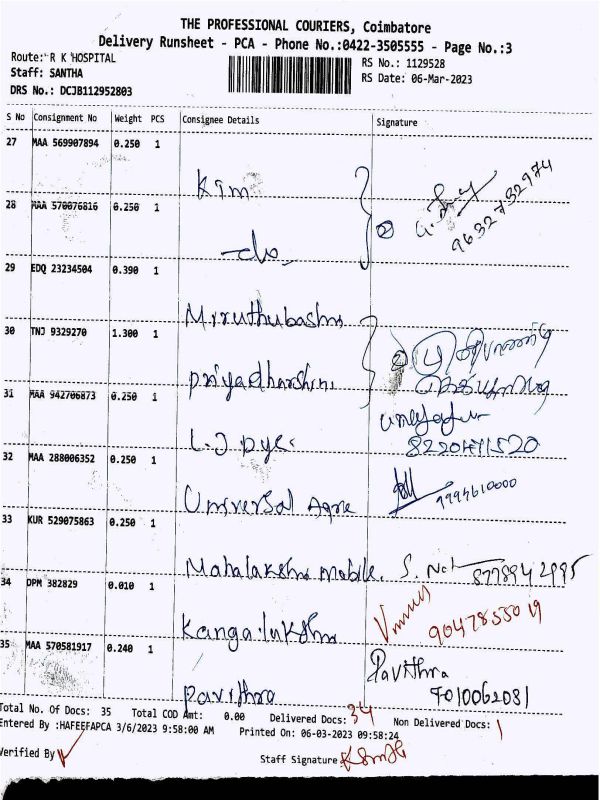 THE PROFESSIONAL COURIERS, Coimbatore
Delivery Runsheet - PCA - Phone No.:0422-3505555 - Page No.:3
Route: R K HOSPITAL
Staff: SANTHA
DRS No.: DCJB112952803
RS No.: 1129528
RS Date: 06-Mar-2023
S No Consignment No Weight PCS Consignee Details Signature
27 MAA 569907894 0.250 1
Kim
9632732974
28 MAA 570076816 0.250 1
-do-
2
29 EDQ 23234504 0.390 1
Miruthubashni
30 TNJ 9329270 1.300 1
Priyadharshini
2
31 MAA 942706873 0.250 1
L.J Dyes
8220471520
32 MAA 288006352 0.250 1
Universal Agre
9994610000
33 KUR 529075863 0.250 1
Mahalakshmi mobile.
34 DPM 382829 0.010 1
Kangalakshmi
35 MAA 570581917 0.240 1
Pavithra
Pavithra
7010062081
Total No. Of Docs: 35 Total COD Amt: 0.00 Delivered Docs: 34 Non Delivered Docs: 1
Entered By :HAFEEFAPCA 3/6/2023 9:58:00 AM Printed On: 06-03-2023 09:58:24
Verified By
Staff Signature